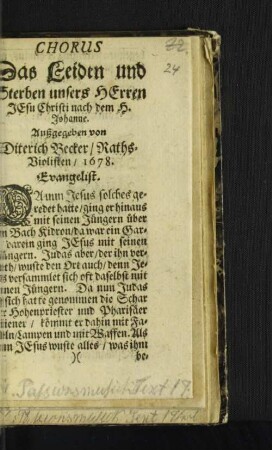 CHORUS
Das Leiden und
Sterben unsers HErren
JEsu Christi nach dem H.
Johanne.
Außgegeben von
Diterich Becker / Raths-
Violisten / 1678.
Evangelist.
DA nun Jesus solches ge-
redet hatte / ging er hinaus
mit seinen Jüngern über
Bach Kidron / da war ein Gar-
darein ging JEsus mit seinen
Jüngern. Judas aber / der ihn ver-
wuste den Ort auch / denn Je-
versammlet sich oft daselbst mit
Jüngern. Da nun Judas
sich hatte genommen die Schar
Hohenpriester und Pharisäer
kömmt er dahin mit Fa-
Lampen und mit Waffen. Als
JEsus wuste alles / was ihm
)( be-
24